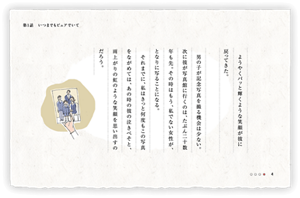 第1話 いつまでもピュアでいて
ようやくパッと輝くような笑顔が妹に
戻ってきた。
男の子が記念写真を撮る機会は少ない。
次に僕が写真館に行くのは、たぶん二十数
年も先、その時はもう、私でない女性が、
となりに写ることになる。
それまでに、私はきっと何度もこの写真
をながめては、あの時の後の泣きべそと、
雨上がりの虹のような笑顔を思い出すの
だろう。
4